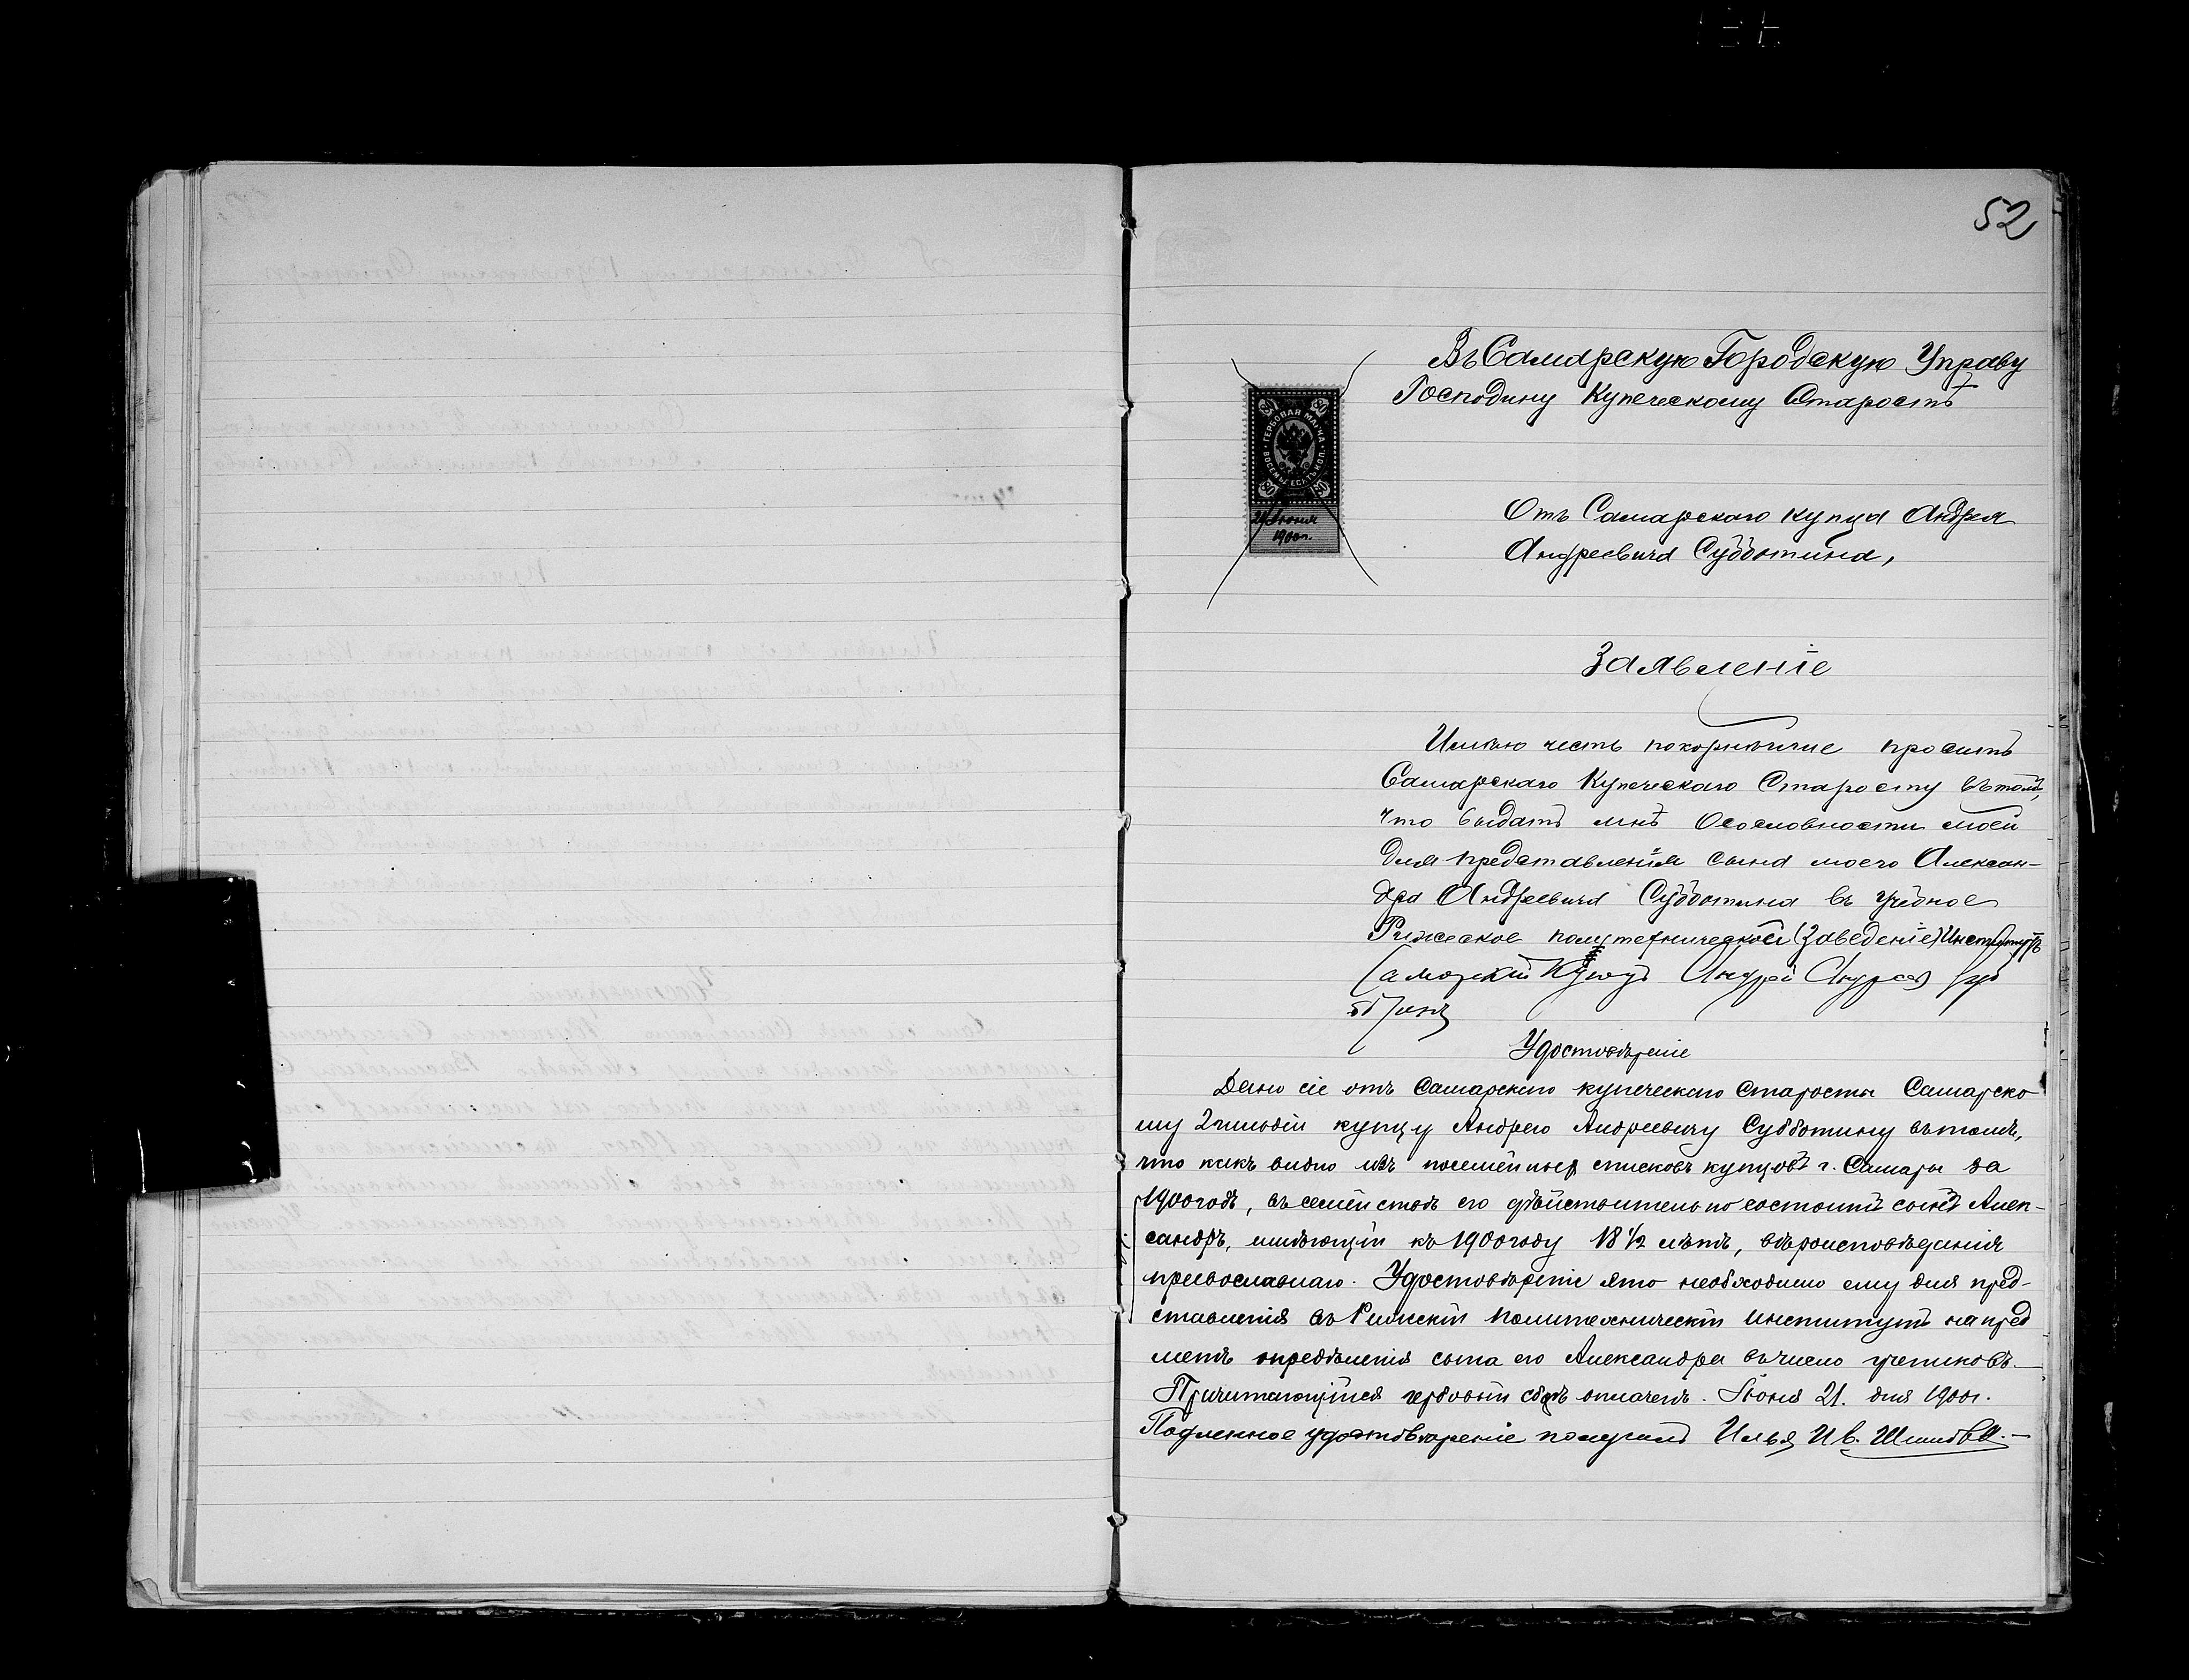 52
Въ Самарскую Городскую Управу
Господину Купеческому Старостѣ
80 80
ГЕРБОВАЯ МАРКА
ВОСЕМЬДЕСЯТЪ КОП.
80 80
21 Июня
1900 г.
Отъ Самарскаго купца Андрея
Андреевича Субботина,
Заявленіе
Имѣю честь покорнѣйше просить
Самарскаго Купеческаго Старосту въ томъ,
что выдать мнѣ О сословности моей
для представленія сына моего Алексан-
дра Андреевича Субботина въ учебное
Рижское политехнической (Заведеніе) Институтъ
Самарскій Купецъ Андрей Андреев Суб
ботинъ
Удостовѣреніе
Дано сіе отъ Самарскаго купеческаго Старосты Самарско
му 2 гильдіи купцу Андрею Андреевичу Субботину въ томъ,
что какъ видно изъ посемейныхъ списковъ купцовъ г. Самары за
1900 годъ, въ семействѣ его дѣйствительно состоитъ сынъ Алек-
сандръ, имѣющій къ 1900 году 18 1/2 лѣтъ, вѣроисповѣданія
православнаго. Удостовѣреніе это необходимо ему для пред-
ставленія въ Рижскій Политехническій Институтъ на пред
метъ опредѣленія сына его Александра въ число учениковъ.
Причитающійся гербовый сборъ оплаченъ. Іюня 21. дня 1900 г.
Подленное удостовѣреніе получилъ Илья Ив.